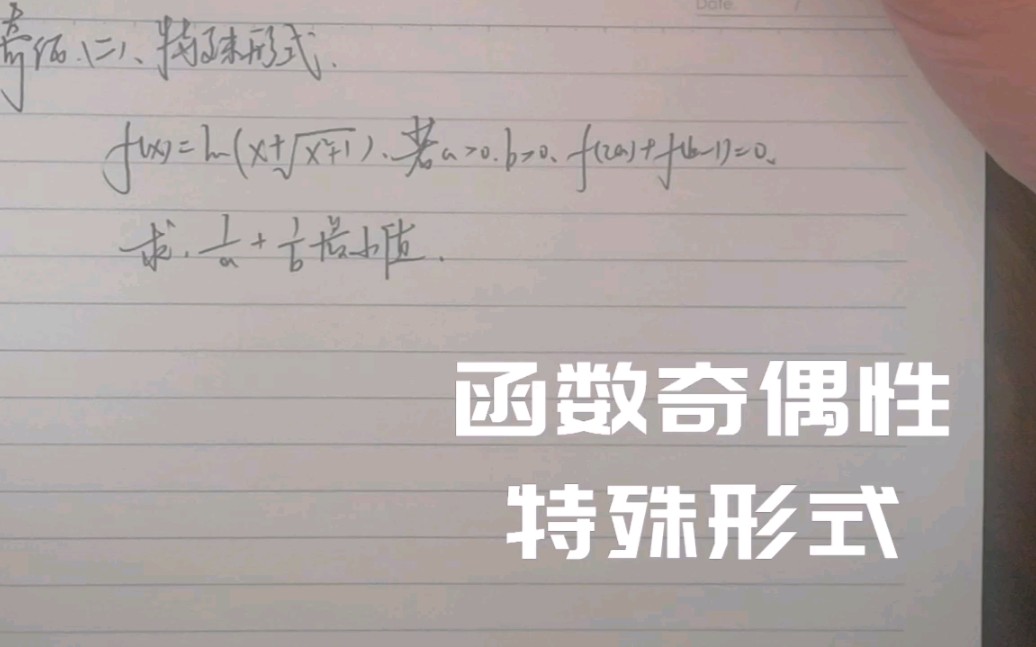 Date.
奇偶.(二)、特殊形式.
f(x)=ln(x+√x²+1)、若a>0.b>0、f(2a)+f(b-1)=0、
求.1/a+1/b最小值.
函数奇偶性
特殊形式